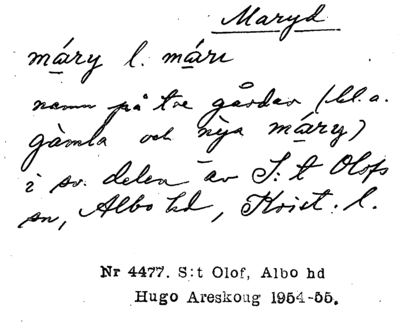 Maryd
máry l. márı
namn på tre gårdar (bl.a.
gàmla och nỳa máry)
i sv. delen av S:t Olofs
sn, Albo hd, Krist. l.
Nr 4477. S:t Olof, Albo hd
Hugo Areskoug 1954-55.